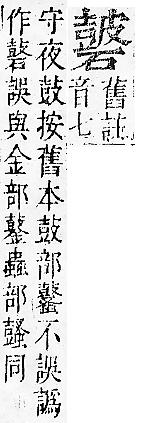 舊註
音七
守夜鼓按舊本鼓部鼜不誤譌
作誤與金部蟲部同